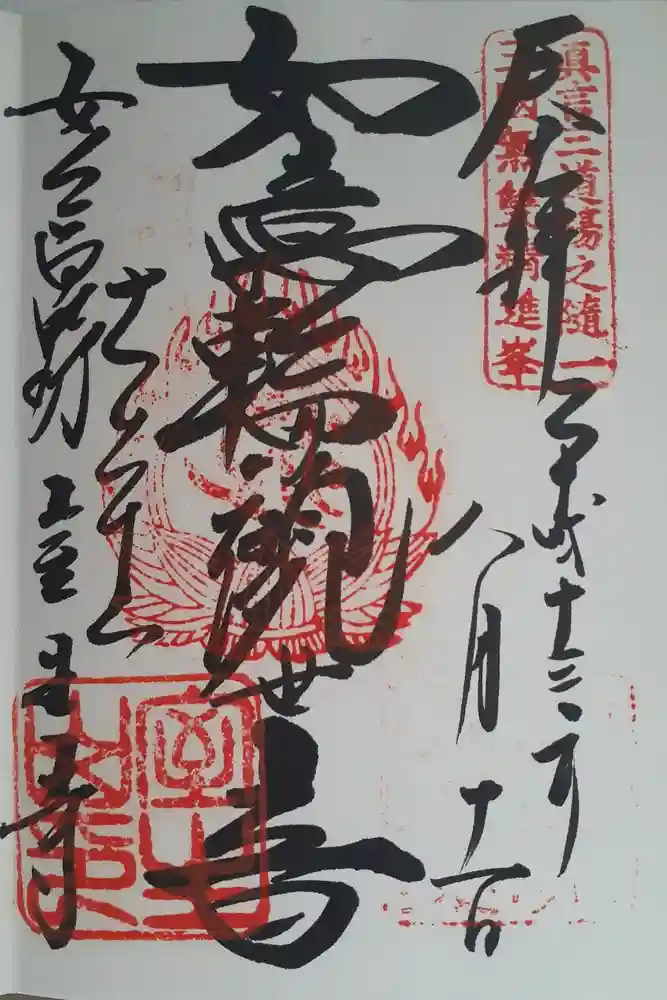 眞言三道場之隨一
三國無雙精進峯
奉拝
平成十三年
八月十一日
如意輪観世音
女人高野
室生寺